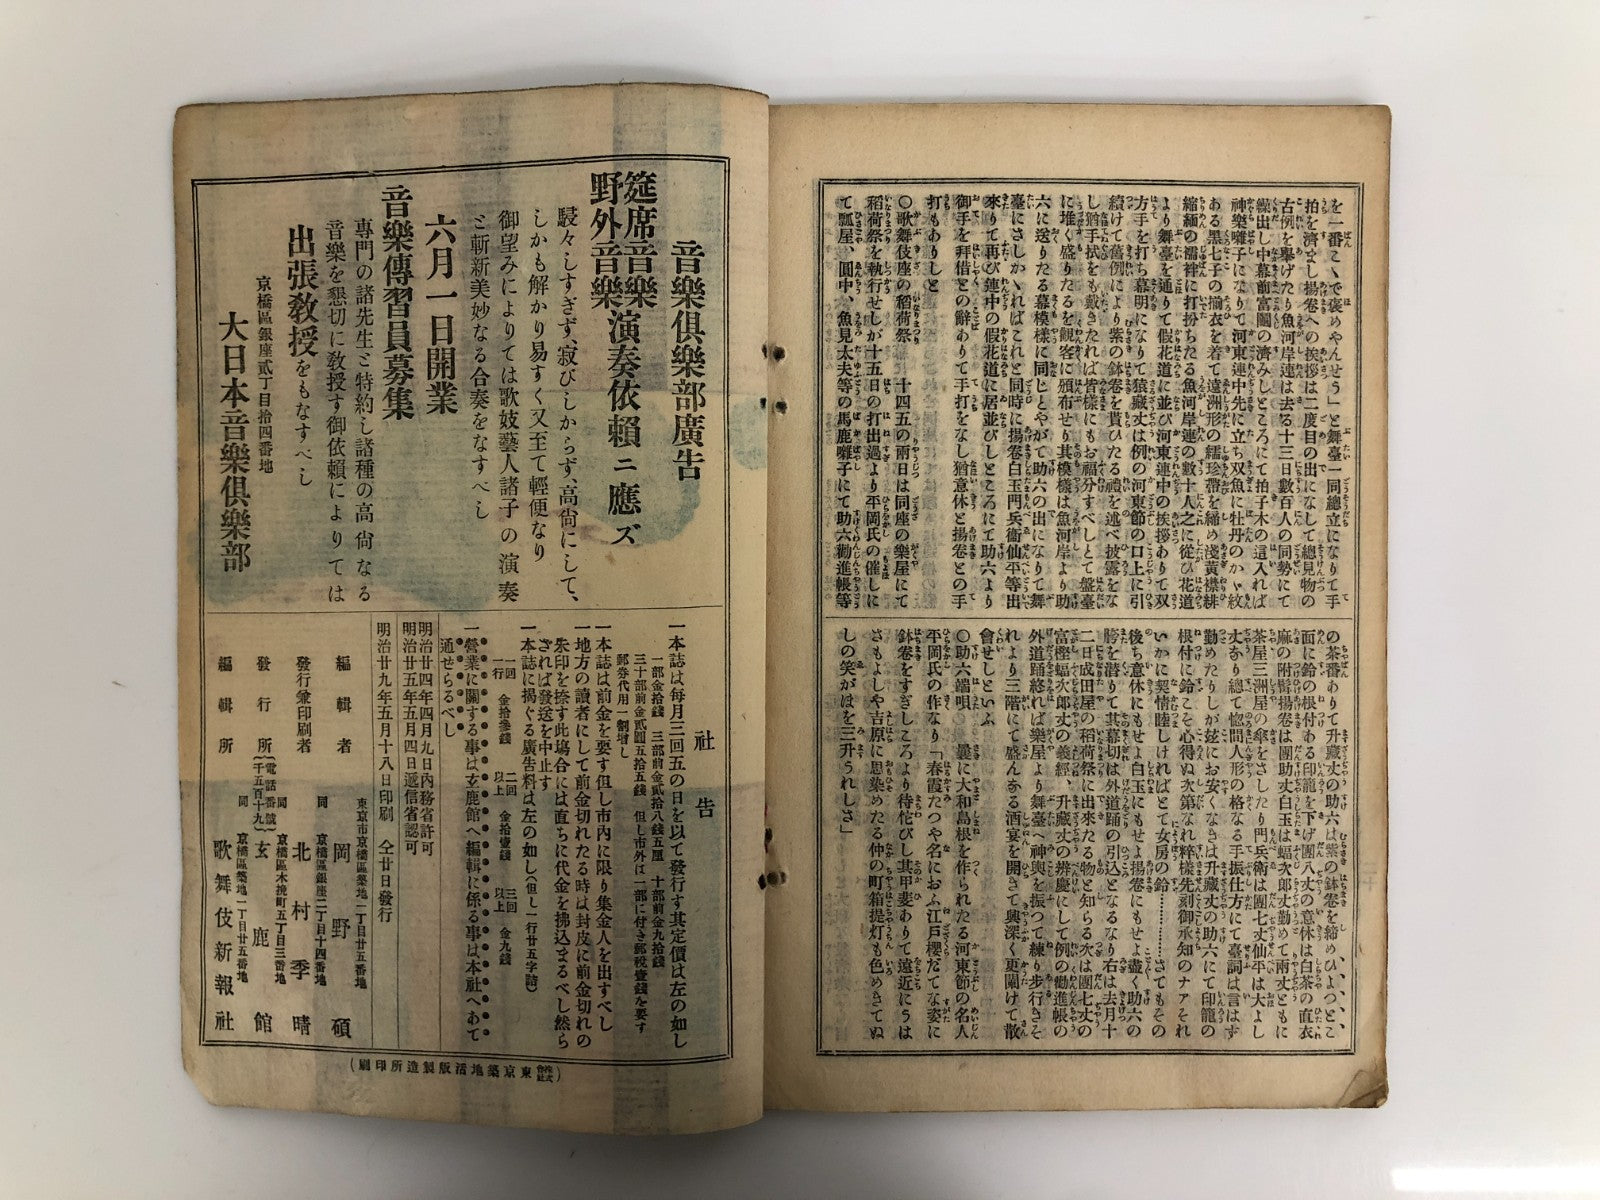 を一番こゝで褒めやんせう」と舞臺一同總立になりて手
拍を濟まし揚卷への挨拶は二度目の出になして總見物の
古例を擧げたり魚河岸連は去る十三日數百人の同勢にて
繰出し中幕前富圖の濟みしところにて拍子木の這入れば
神樂囃子になりて河東連中先に立ち双魚に牡丹のかゞ紋
ある黑七子の揃衣を着て遠洲形の繻珍帶を締め淺黃襟緋
縮緬の濡褌に打扮ちたる魚河岸連の數十人之に從ひ花道
より舞臺を通りて假花道に並び河東連中の挨拶ありて双
方手を打ち幕明になりて猿藏丈は例の河東節の口上に引
續けて舊例により紫の鉢卷を貰ひたる禮を逃べ披露をな
し猶手拭をも戴きたれば皆樣にもお福分すべしとて盤臺
に堆く盛りたるを觀客に頒布せり其模樣は魚河岸より助
六に送りたる幕模樣に同じとやがて助六の出になりて舞
臺にさしかゝればこれと同時に揚卷白玉門兵衞仙平等出
來りて再び連中の假花道に居並びしところにて助六より
御手を拜借との辭ありて手打をなし猶意休と揚卷との手
打もありしと
〇歌舞伎座の稻荷祭 十四五の兩日は同座の樂屋にて
稻荷祭を執行せしが十五日の打出過より平岡氏の催しに
て瓢屋、圓中、魚見太夫等の馬鹿囃子にて助六勸進帳等
の茶番ありて升藏丈の助六は紫の鉢卷を締めひよつとこ
面に鈴の根付ある印籠を下げ團八丈の意休は白茶の直衣
麻の附髯揚卷は團助丈白玉は蝠次郎丈勤めて兩丈ともに
茶屋三洲屋の傘をさしたり門兵衛は團七丈仙平は大よし
丈なり總て惚間人形の格なる手振仕方にて臺詞は言はず
勤めたりしが玆にお安くなきは升藏丈の助六にて印籠の
根付に鈴こそ心得ぬ次第なれ粹樣先刻御承知のナアそれ
いかに契情睦しければとて女房の鈴…………さてもその
後ち意休にもせよ白玉にもせよ揚卷にもせよ盡く助六の
膀を潛りて其幕切は外道踊の引込となるなり右は去月十
二日成田屋の稻荷祭に出來たる物と知らる次は團七丈の
富樫蝠次郎丈の義經、升藏丈の辨慶にして例の勸進帳の
外道踊終れば樂屋より舞臺へ神輿を振つて練り步行きそ
れより三階にて盛んなる酒宴を開きて興深く更闌けて散
會せしといふ
〇助六端唄 曩に大和島根を作られたる河東節の名人
平岡氏の作なり「春霞たつや名におふ江戸櫻だてな姿に
鉢卷をすぎしころより待侘びし其甲斐ありて遠近にうは
さもよしや吉原に思染めたる仲の町箱提灯も色めきてぬ
しの笑がほを三升うれしさ」
音樂俱樂部廣告
筵席音樂
野外音樂演奏依賴ニ應ズ
駸々しすぎず、寂びしからず、高尙にして、
しかも解かり易すく又至て輕便なり
御望みによりては歌妓藝人諸子の演奏
と斬新美妙なる合奏をなすべし
六月一日開業
音樂傳習員募集
專門の諸先生と特約し諸種の高尙なる
音樂を懇切に敎授す御依賴によりては
出張敎授をもなすべし
京橋區銀座貳丁目拾四番地
大日本音樂俱樂部
社告
一本誌は每月三回五の日を以て發行す其定價は左の如し
一部金拾錢 三部前金貳拾八錢五厘 十部前金九拾錢
三十部前金貳圓五拾五錢 但し市外は一部に付き郵稅壹錢を要す
郵券代用一割增し
一本誌は前金を要す但し市內に限り集金人を出すべし
一地方の讀者にして前金切れたる時は封皮に前金切れの
朱印を捺す此場合には直ちに代金を拂込まるべし然ら
ざれば發送を中止す
一本誌に揭ぐる廣告料は左の如し（但し一行廿五字詰）
一回 金拾參錢 二回以上 金拾壹錢 三回以上 金九錢
一行
一營業に關する事は玄鹿館へ編輯に係る事は本社へあて
通せらるべし
明治廿四年四月九日內務省許可
明治廿五年五月四日遞信省認可
明治廿九年五月十八日印刷 仝廿日發行
東京市京橋區築地一丁目廿五番地
編輯者 岡野碩
同 京橋區銀座二丁目十四番地
發行兼印刷者 北村季晴
同 京橋區木挽町五丁目三番地
發行所 （電話番號千五百十九） 玄鹿館
同 京橋區築地一丁目廿五番地
編輯所 歌舞伎新報社
（株式會社東京築地活版製造所印刷）